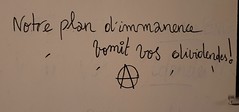 Notre plan d'immanence
vomit vos dividendes!